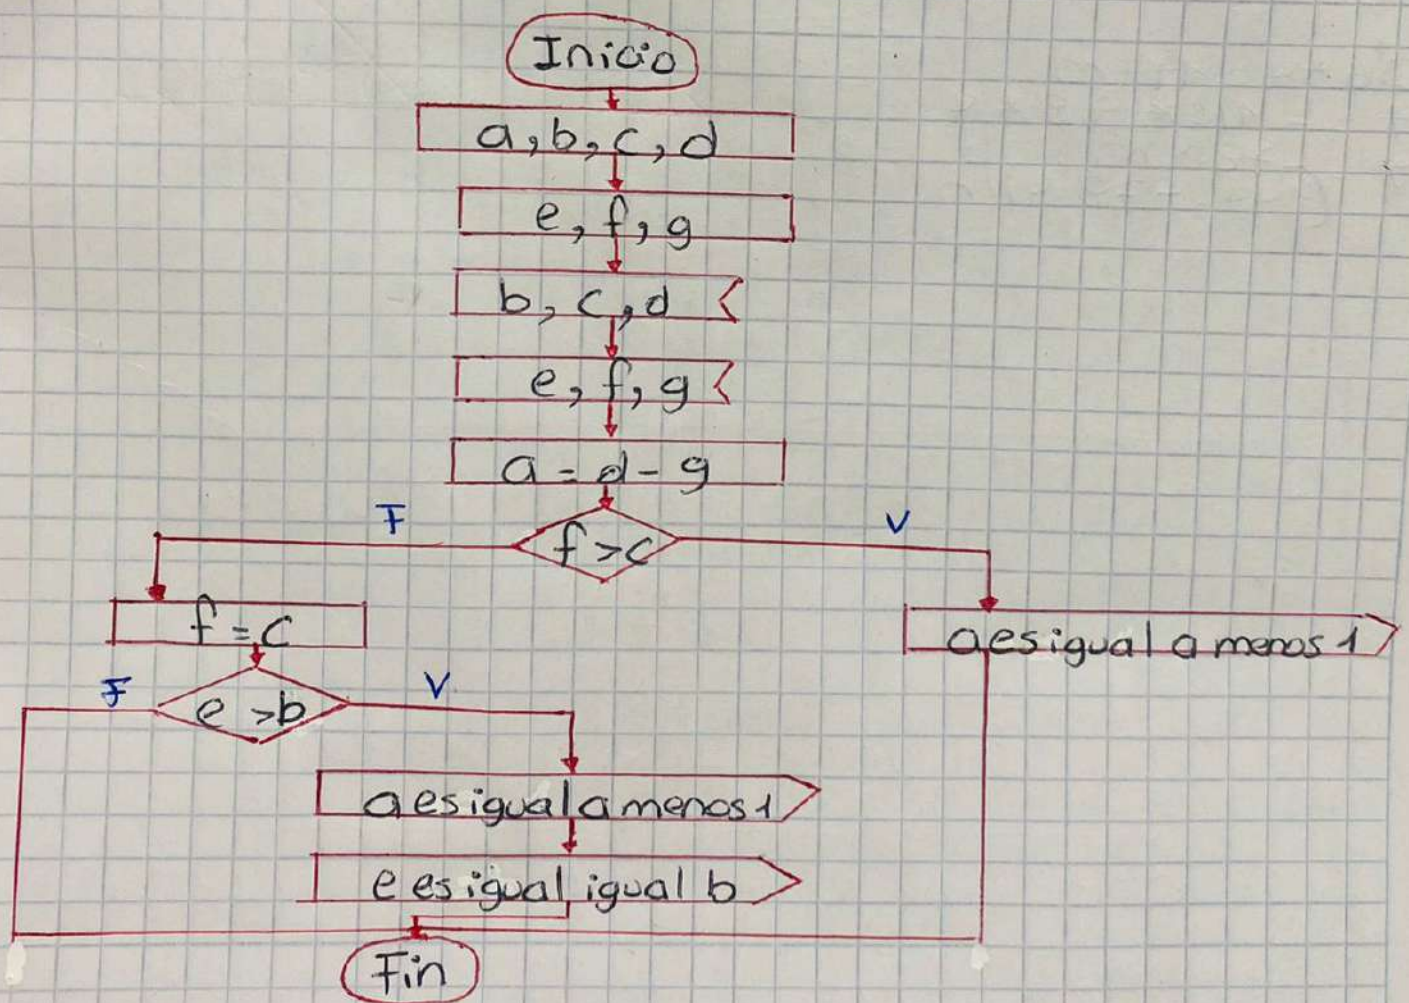 Inicio
a, b, c, d
e, f, g
b, c, d
e, f, g
a = d - g
F
f > c
V
f = c
a es igual a menos 1
F
e > b
V
a es igual a menos 1
e es igual igual b
Fin